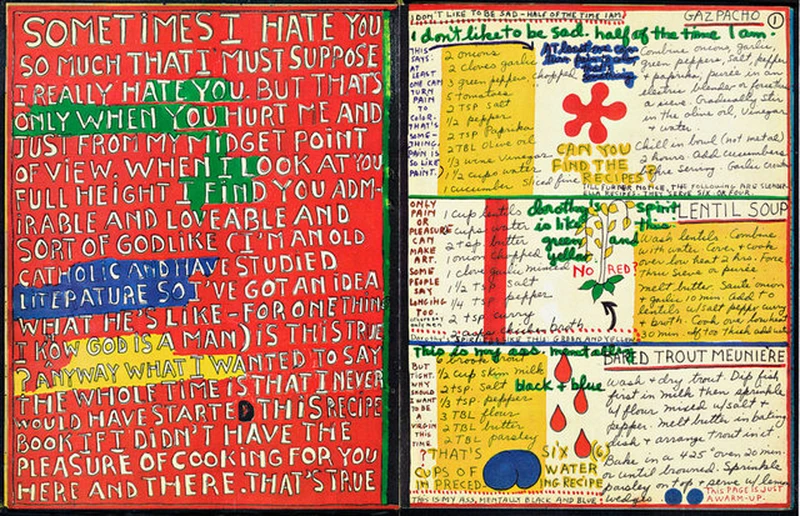 SOMETIMES I HATE YOU
SO MUCH THAT I MUST SUPPOSE
I REALLY HATE YOU. BUT THAT'S
ONLY WHEN YOU HURT ME AND
JUST FROM MY MIDGET POINT
OF VIEW. WHEN I LOOK AT YOU
FULL HEIGHT I FIND YOU ADM-
IRABLE AND LOVEABLE AND
SORT OF GODLIKE (I'M AN OLD
CATHOLIC AND HAVE STUDIED
LITERATURE SO I'VE GOT AN IDEA
WHAT HE'S LIKE - FOR ONE THING
I KOW GOD IS A MAN) IS THIS TRUE
? ANYWAY WHAT I WANTED TO SAY
THE WHOLE TIME IS THAT I NEVER
WOULD HAVE STARTED THIS RECIPE
BOOK IF I DIDN'T HAVE THE
PLEASURE OF COOKING FOR YOU
HERE AND THERE. THAT'S TRUE
I DON'T LIKE TO BE SAD - HALF OF THE TIME I AM
GAZPACHO
1
I don't like to be sad. half of the time I am.
THIS
SAYS:
AT
LEAST
ONE CAN
TURN
PAIN
TO
COLOR.
THAT'S
SOME-
THING.
PAIN IS
SO LIKE
PAINT.
2 onions
2 cloves garlic
3 green peppers, chopped
5 tomatoes
2 TSP salt
1/2 pepper
2 TSP Paprika
2 TBL Olive oil
1/3 wine vinegar
1 1/2 cups water
1 cucumber sliced fine
At least one can
CAN YOU
FIND THE
RECIPES?
Combine onions, garlic,
green peppers, salt, pepper
+ paprika, puree in an
electric blender or force thru
a sieve. Gradually stir
in the olive oil, vinegar,
+ water.
Chill in bowl (not metal)
2 hours. Add cucumbers
before serving. Garlic croutons
TILL FURTHER NOTICE, THE FOLLOWING ARE SLENDER-
ELLA RECIPES. THEY SERVE SIX OR FOUR.
ONLY
PAIN
OR
PLEASURE
CAN
MAKE
ART.
SOME
PEOPLE
SAY
LONGING
TOO.
1 cup lentils
cups water
2 TSP butter
1 onion chopped
1 clove garlic minced
1 1/2 TSP salt
1/4 TSP pepper
2 TSP curry
2 cups chicken broth
dorothy's spirit
is like this
green and
yellow
NO RED?
LENTIL SOUP
Wash lentils. Combine
with water. Cover + cook
over low heat 2 hrs. Force
thru sieve or puree
melt butter. Saute onion
+ garlic 10 min. Add to
lentils w/ salt pepper curry
+ broth. Cook over low heat
30 min.
This is my ass. mentally
black + blue
BUT
TIGHT.
WHY
SHOULD
I WANT
TO BE
A
VIRGIN
THIS
TIME
?
1/2 cup skim milk
2 TSP. Salt
1/3 TSP. pepper
3 TBL flour
2 TBL butter
2 TBL parsley
THAT'S SIX (6)
CUPS OF WATER
IN PRECEDING RECIPE
BAKED TROUT MEUNIÈRE
wash + dry trout. Dip fish
first in milk then sprinkle
w/ flour mixed w/ salt +
pepper. melt butter in bating
dish + arrange trout in it.
Bake in a 425° oven 20 min.
or until browned. Sprinkle
parsley on top + serve w/ lemon
wedges.
THIS PAGE IS JUST
A WARM-UP.
THIS IS MY ASS, MENTALLY BLACK AND BLUE